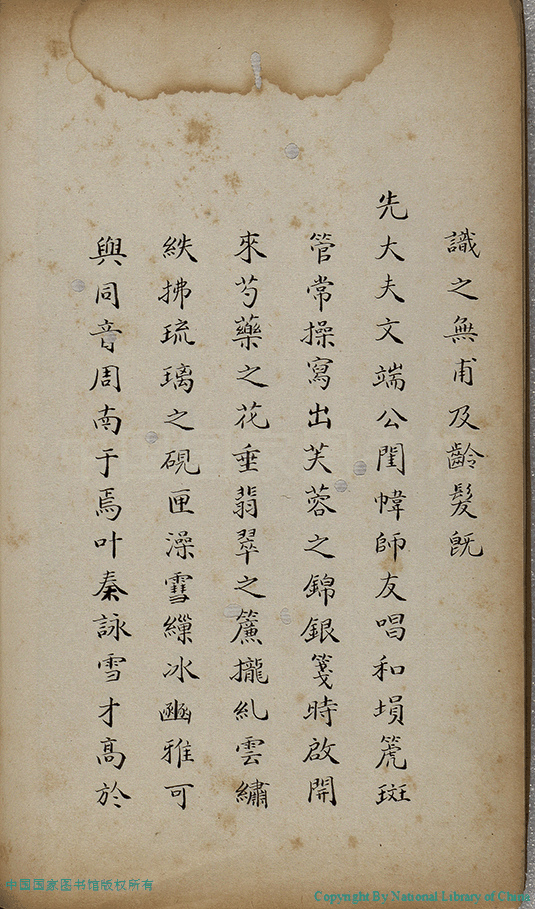 識之無甫及齡髮既
先大夫文端公閨幃師友唱和塤篪斑
管常操寫出芙蓉之錦銀箋時啟開
來芍藥之花垂翡翠之簾攏乣雲繡
紩拂琉璃之硯匣澡雪繅冰幽雅可
與同音周南于焉叶奏詠雪才高於
中国国家图书馆版权所有
Copyright By National Library of China